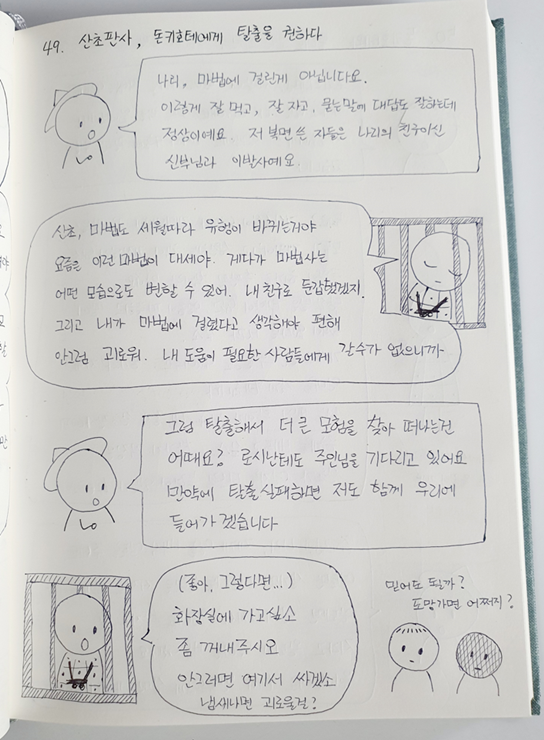 49. 산초판사, 돈키호테에게 탈출을 권하다
나리, 마법에 걸린게 아닙니다요.
이렇게 잘 먹고, 잘 자고, 묻는말에 대답도 잘하는데
정상이예요. 저 복면쓴 자들은 나리의 친구이신
신부님과 이발사예요.
산초, 마법도 세월따라 유형이 바뀌는거야
요즘은 이런 마법이 대세야. 게다가 마법사는
어떤 모습으로도 변할 수 있어. 내 친구로 둔갑했겠지.
그리고 내가 마법에 걸렸다고 생각해야 편해
안그럼 괴로워. 내 도움이 필요한 사람들에게 갈수가 없으니까
그럼 탈출해서 더 큰 모험을 찾아 떠나는건
어때요? 로시난테도 주인님을 기다리고 있어요
만약에 탈출 실패하면 저도 함께 우리에
들어가겠습니다
(좋아, 그렇다면...)
화장실에 가고싶소
좀 꺼내주시오
안그러면 여기서 싸겠소
냄새나면 괴로울걸?
믿어도 될까?
도망가면 어쩌지?